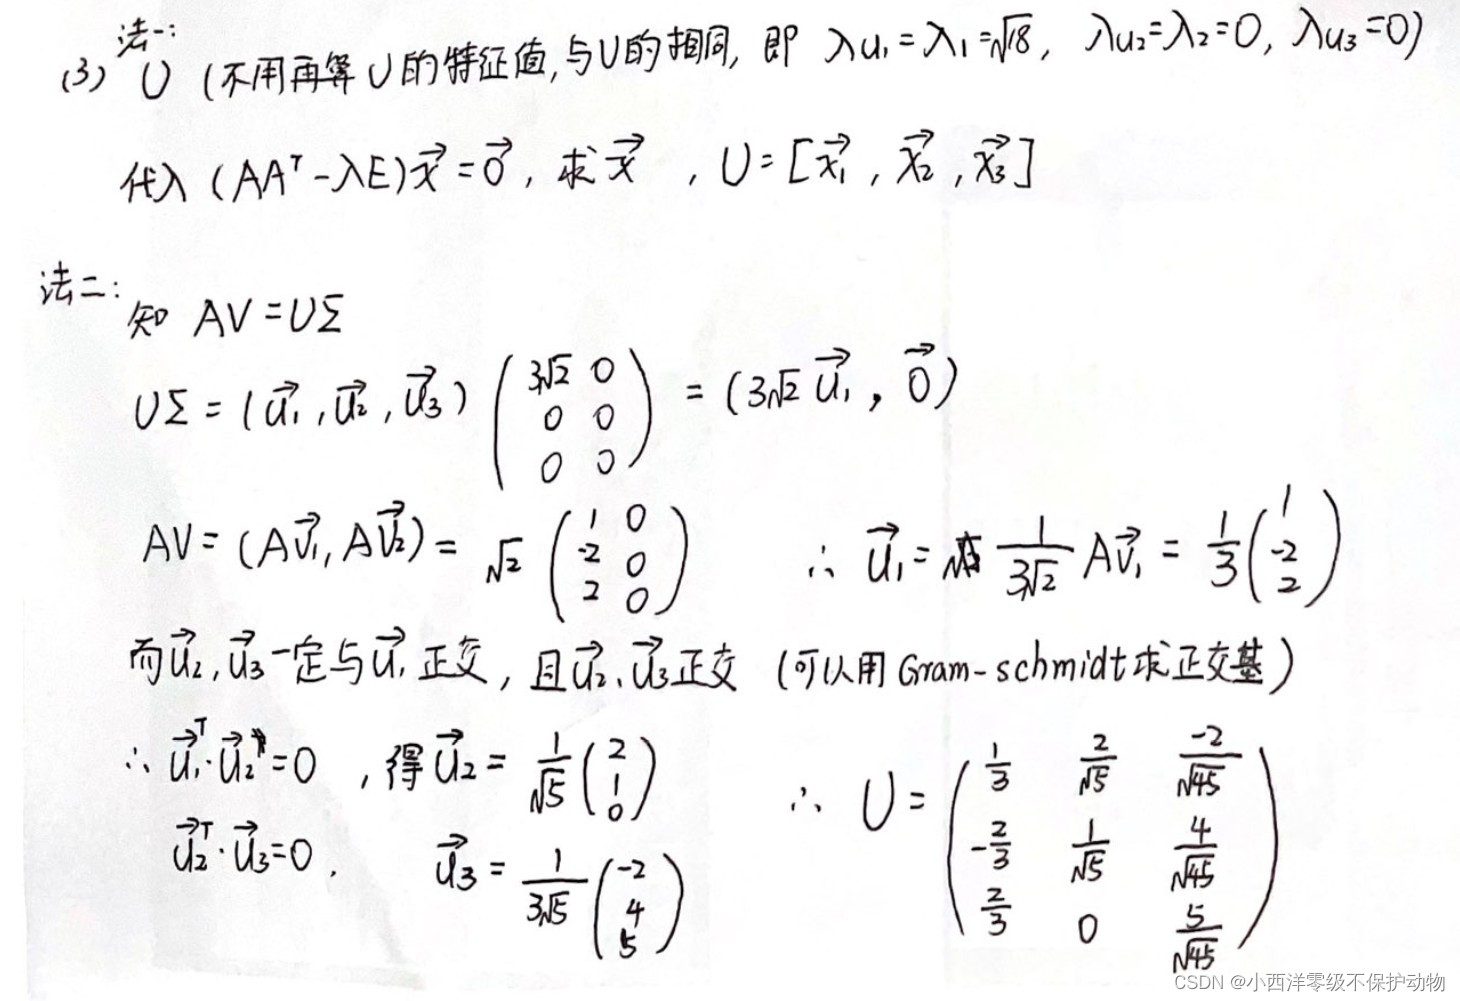 法一:
(3) U (不用再算U的特征值,与U的相同, 即 λu₁=λ₁=√18, λu₂=λ₂=0, λu₃=0)
代入 (AAᵀ-λE)x⃗=0⃗, 求x⃗, U=[x⃗₁, x⃗₂, x⃗₃]
法二:
知 AV=UΣ
UΣ=(u⃗₁, u⃗₂, u⃗₃) (3√2 0; 0 0; 0 0) = (3√2 u⃗₁, 0⃗)
AV=(Av⃗₁, Av⃗₂)= √2 (1 0; -2 0; 2 0) ∴ u⃗₁= 1/(3√2) Av⃗₁ = 1/3 (1; -2; 2)
而u⃗₂, u⃗₃一定与u⃗₁正交, 且u⃗₂、u⃗₃正交 (可以用Gram-schmidt求正交基)
∴ u⃗₁ᵀ·u⃗₂=0, 得u⃗₂= 1/√5 (2; 1; 0) ∴ U= (1/3 2/√5 -2/√45; -2/3 1/√5 4/√45; 2/3 0 5/√45)
u⃗₂ᵀ·u⃗₃=0. u⃗₃= 1/(3√5) (-2; 4; 5)
CSDN @小西洋零级不保护动物